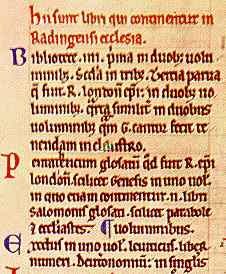 hii sunt libri qui continentur in
Radingensi ecclesia.
Bibliotece .iiii. p̃ma in duob; uolu
minib;. Scd̃a in trib;. Tercia parua
q̃ fuit R. london̄ ep̃i: in duob; uo
luminib;. q̃rta similit̃ in duobus
uoluminib; q̃m G. cantor fecit te
nendam in claustro.
Pentateucum glosatũ qđ fuit R. ep̃i
london̄. scilicet Genesis in uno uol̃.
in quo etiam continentur .ii. libri
salomonis glosati. scilicet parabole
⁊ eccl̃iastes. uoluminibus.
Exodus in uno uol̃. leuiticus. liber
numeri. Deut̃onomiũ: in singlis